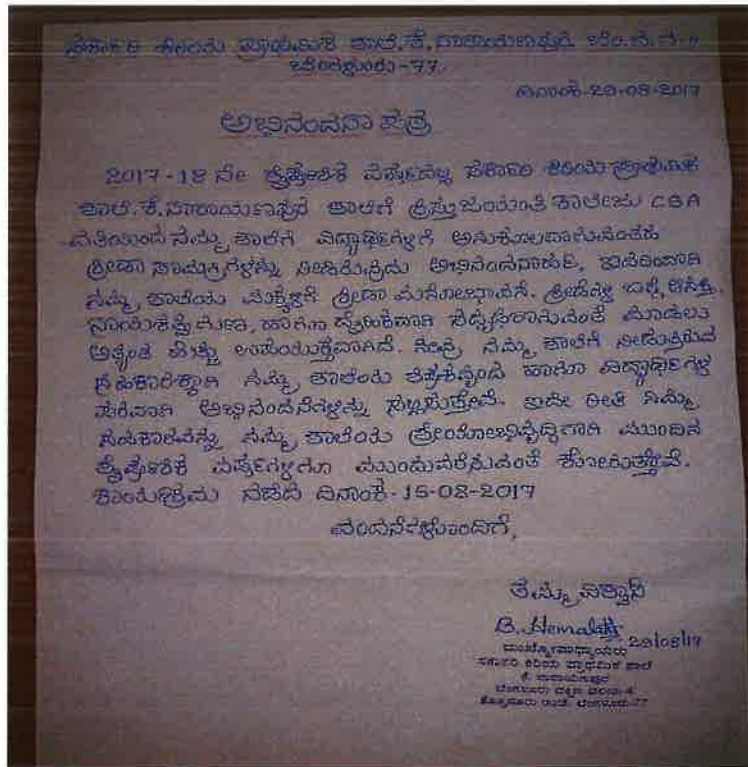 ಸರ್ಕಾರಿ ಕಿರಿಯ ಪ್ರಾಥಮಿಕ ಶಾಲೆ. ಕೆ. ನಾರಾಯಣಪುರ
ಬೆಂಗಳೂರು-77.
ದಿನಾಂಕ-29-08-2017
ಅಭಿನಂದನಾ ಪತ್ರ
2017-18 ನೇ ಶೈಕ್ಷಣಿಕ ವರ್ಷದಲ್ಲಿ ಸರ್ಕಾರಿ ಕಿರಿಯ ಪ್ರಾಥಮಿಕ
ಶಾಲೆ. ಕೆ. ನಾರಾಯಣಪುರ ಶಾಲೆಗೆ ಕ್ರಿಸ್ತು ಜಯಂತಿ ಕಾಲೇಜು CSA
ವತಿಯಿಂದ ನಮ್ಮ ಶಾಲೆಗೆ ವಿದ್ಯಾರ್ಥಿಗಳಿಗೆ ಅನುಕೂಲವಾಗುವಂತಹ
ಕ್ರೀಡಾ ಸಾಮಗ್ರಿಗಳನ್ನು ನೀಡಿರುವುದು ಅಭಿನಂದನಾರ್ಹ, ಇದರಿಂದಾಗಿ
ನಮ್ಮ ಶಾಲೆಯ ಮಕ್ಕಳಿಗೆ ಕ್ರೀಡಾ ಮನೋಭಾವನೆ, ಕ್ರೀಡೆಗಳ ಬಗ್ಗೆ ಆಸಕ್ತಿ,
ನಾಯಕತ್ವ ಗುಣ, ಹಾಗೂ ದೈಹಿಕವಾಗಿ ಸದೃಢರಾಗುವಂತೆ ಮಾಡಲು
ಅತ್ಯಂತ ಹೆಚ್ಚು ಉಪಯುಕ್ತವಾಗಿದೆ. ನಮ್ಮ ಶಾಲೆಗೆ ನೀಡುತ್ತಿರುವ
ಸಹಕಾರಕ್ಕಾಗಿ ನಮ್ಮ ಶಾಲೆಯ ಶಿಕ್ಷಕವೃಂದ ಹಾಗೂ ವಿದ್ಯಾರ್ಥಿಗಳ
ಪರವಾಗಿ ಅಭಿನಂದನೆಗಳನ್ನು ಸಲ್ಲಿಸುತ್ತೇವೆ. ಇದೇ ರೀತಿ ನಿಮ್ಮ
ಸಹಕಾರವನ್ನು ನಮ್ಮ ಶಾಲೆಯ ಶ್ರೇಯೋಭಿವೃದ್ಧಿಗಾಗಿ ಮುಂದಿನ
ಶೈಕ್ಷಣಿಕ ವರ್ಷಗಳಿಗೂ ಮುಂದುವರೆಸುವಂತೆ ಕೋರುತ್ತೇವೆ.
ಕಾರ್ಯಕ್ರಮ ನಡೆದ ದಿನಾಂಕ-15-08-2017
ವಂದನೆಗಳೊಂದಿಗೆ,
ತಮ್ಮ ವಿಶ್ವಾಸಿ
B. Hemalatha 29/08/17
ಮುಖ್ಯೋಪಾಧ್ಯಾಯರು
ಸರ್ಕಾರಿ ಕಿರಿಯ ಪ್ರಾಥಮಿಕ ಶಾಲೆ
ಕೆ. ನಾರಾಯಣಪುರ
ಬೆಂಗಳೂರು ದಕ್ಷಿಣ ವಲಯ-4
ಕೊತ್ತನೂರು ಅಂಚೆ, ಬೆಂಗಳೂರು-77